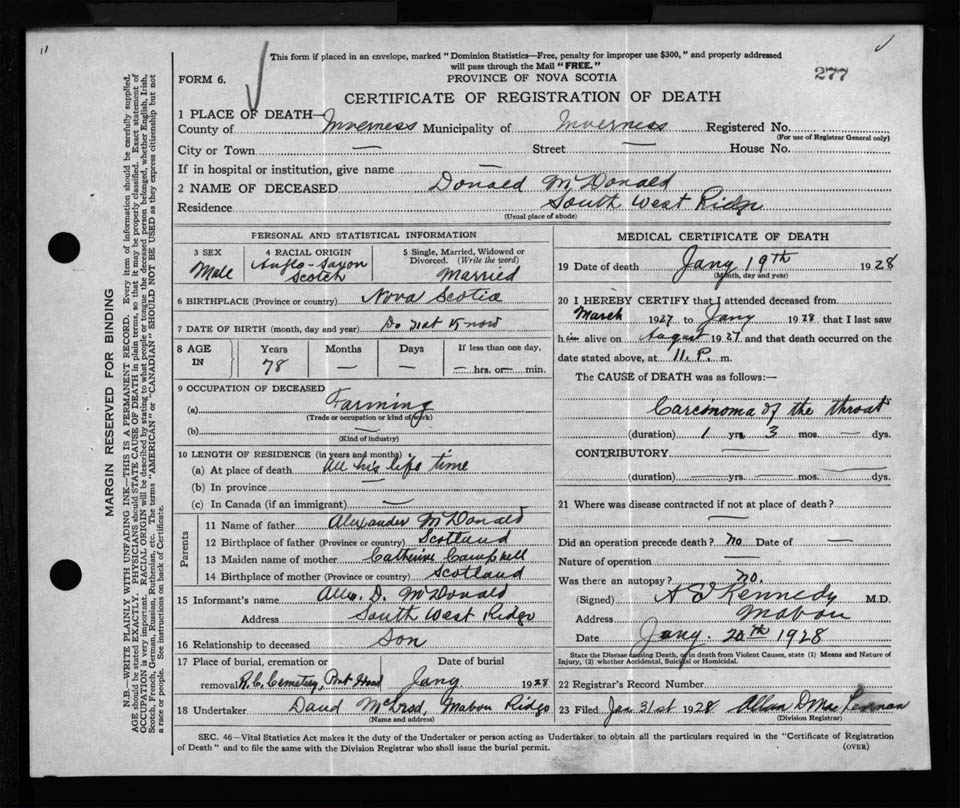 This form if placed in an envelope, marked "Dominion Statistics—Free, penalty for improper use $300," and properly addressed
will pass through the Mail "FREE."
FORM 6.
PROVINCE OF NOVA SCOTIA
277
CERTIFICATE OF REGISTRATION OF DEATH
1 PLACE OF DEATH—
County of Inverness Municipality of Inverness Registered No.
(For use of Registrar General only)
City or Town — Street — House No.
If in hospital or institution, give name —
2 NAME OF DECEASED Donald McDonald
Residence South West Ridge
(Usual place of abode)
MARGIN RESERVED FOR BINDING
N.B.—WRITE PLAINLY WITH UNFADING INK—THIS IS A PERMANENT RECORD. Every item of information should be carefully supplied.
AGE should be stated EXACTLY. PHYSICIANS should STATE CAUSE OF DEATH in plain terms, so that it may be properly classified. Exact statement of
OCCUPATION is very important. RACIAL ORIGIN will be described by stating to what people or tongue the deceased person belonged, whether English, Irish,
Scotch, French, German, Russian, Ruthenian, etc. The terms "AMERICAN" or "CANADIAN" SHOULD NOT BE USED as they express citizenship but not
a race or people. See instructions on back of Certificate.
PERSONAL AND STATISTICAL INFORMATION
3 SEX
Male
4 RACIAL ORIGIN
Anglo-Saxon
Scotch
5 Single, Married, Widowed or
Divorced. (Write the word)
Married
6 BIRTHPLACE (Province or country) Nova Scotia
7 DATE OF BIRTH (month, day and year) Do not know
8 AGE IN
Years Months Days If less than one day,
78 — — — hrs. or — min.
9 OCCUPATION OF DECEASED
(a) Farming
(Trade or occupation or kind of work)
(b) —
(Kind of industry)
10 LENGTH OF RESIDENCE (in years and months)
(a) At place of death All his life time
(b) In province —
(c) In Canada (if an immigrant) —
Parents
11 Name of father Alexander McDonald
12 Birthplace of father (Province or country) Scotland
13 Maiden name of mother Catherine Campbell
14 Birthplace of mother (Province or country) Scotland
15 Informant's name Allex. D. McDonald
Address South West Ridge
16 Relationship to deceased Son
17 Place of burial, cremation or Date of burial
removal R.C. Cemetery, Port Hood Jany 1928
18 Undertaker McLeod Mabou Ridge
(Name and address)
MEDICAL CERTIFICATE OF DEATH
19 Date of death Jany 19th 1928
(Month, day and year)
20 I HEREBY CERTIFY that I attended deceased from
March 1927 to Jany 1928 that I last saw
him alive on August 1927 and that death occurred on the
date stated above, at 11. P. m.
The CAUSE OF DEATH was as follows:—
Carcinoma of the throat
(duration) 1 yrs. 3 mos. — dys.
CONTRIBUTORY —
(duration) — yrs. — mos. — dys.
21 Where was disease contracted if not at place of death?
—
Did an operation precede death? no Date of —
Nature of operation —
Was there an autopsy? no.
(Signed) Kennedy M.D.
Address Mabou
Date Jany. 20th 1928
State the Disease causing Death, or in death from Violent Causes, state (1) Means and Nature of
Injury, (2) whether Accidental, Suicidal or Homicidal.
22 Registrar's Record Number
23 Filed Jan 31st 1928 Allan D MacLennan
(Division Registrar)
SEC. 46—Vital Statistics Act makes it the duty of the Undertaker or person acting as Undertaker to obtain all the particulars required in the "Certificate of Registration
of Death" and to file the same with the Division Registrar who shall issue the burial permit. (OVER)